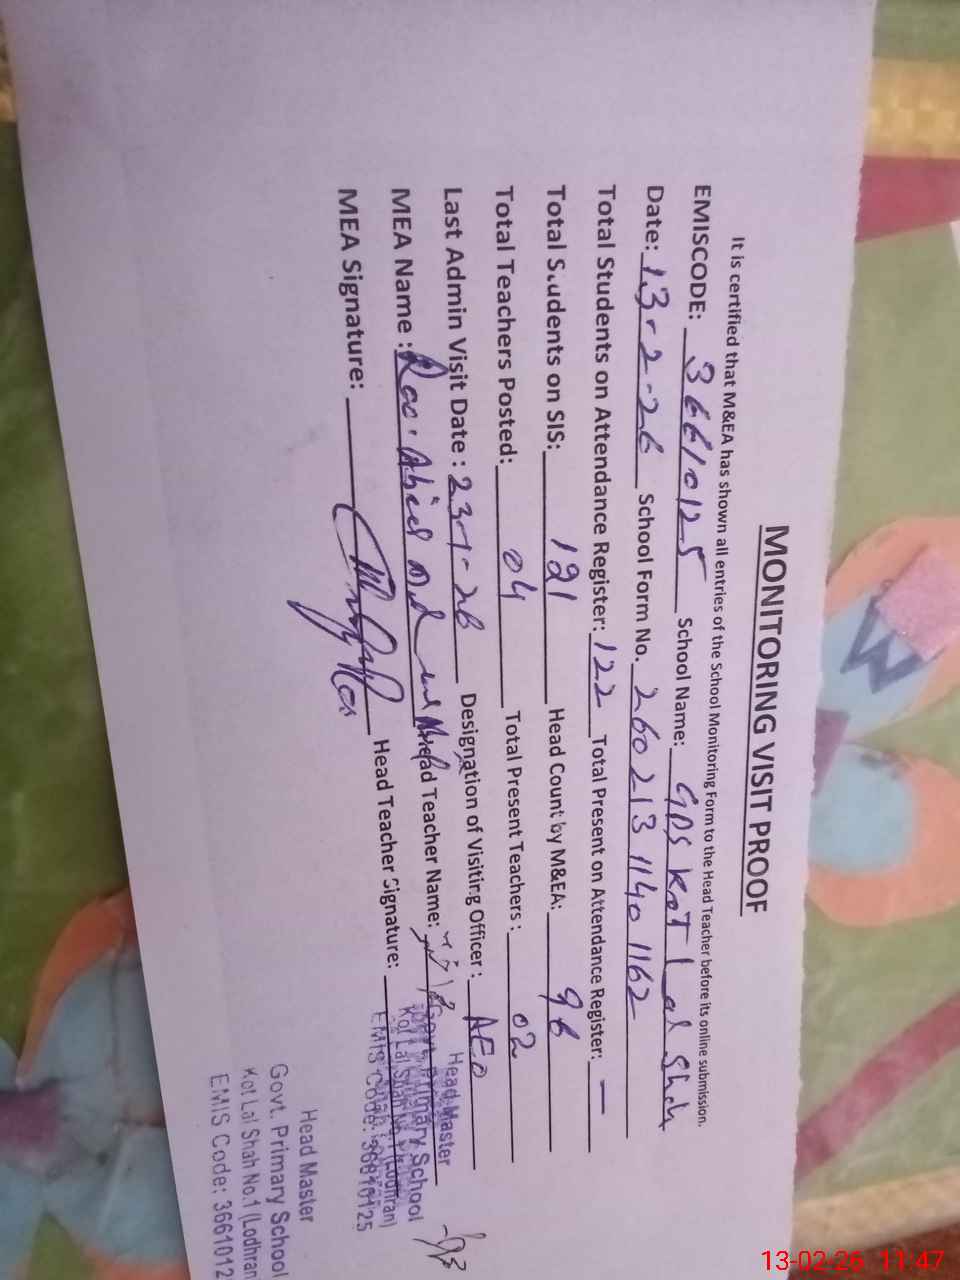 MONITORING VISIT PROOF
It is certified that M&EA has shown all entries of the School Monitoring Form to the Head Teacher before its online submission.
EMISCODE: 36610125 School Name: GPS Kot Lal Shah
Date: 13-2-26 School Form No. 260213 1140 1162
Total Students on Attendance Register: 122 Total Present on Attendance Register: —
Total Students on SIS: 121 Head Count by M&EA: 96
Total Teachers Posted: 04 Total Present Teachers: 02
Last Admin Visit Date: 23-1-26 Designation of Visiting Officer: AEO
MEA Name: Rao Abid Head Teacher Name:
MEA Signature: Head Teacher Signature:
Head Master
Govt. Primary School
Kot Lal Shah No.1 (Lodhran)
EMIS Code: 36610125
Head Master
Govt. Primary School
Kot Lal Shah No.1 (Lodhran
EMIS Code: 3661012
13-02-26 11:47